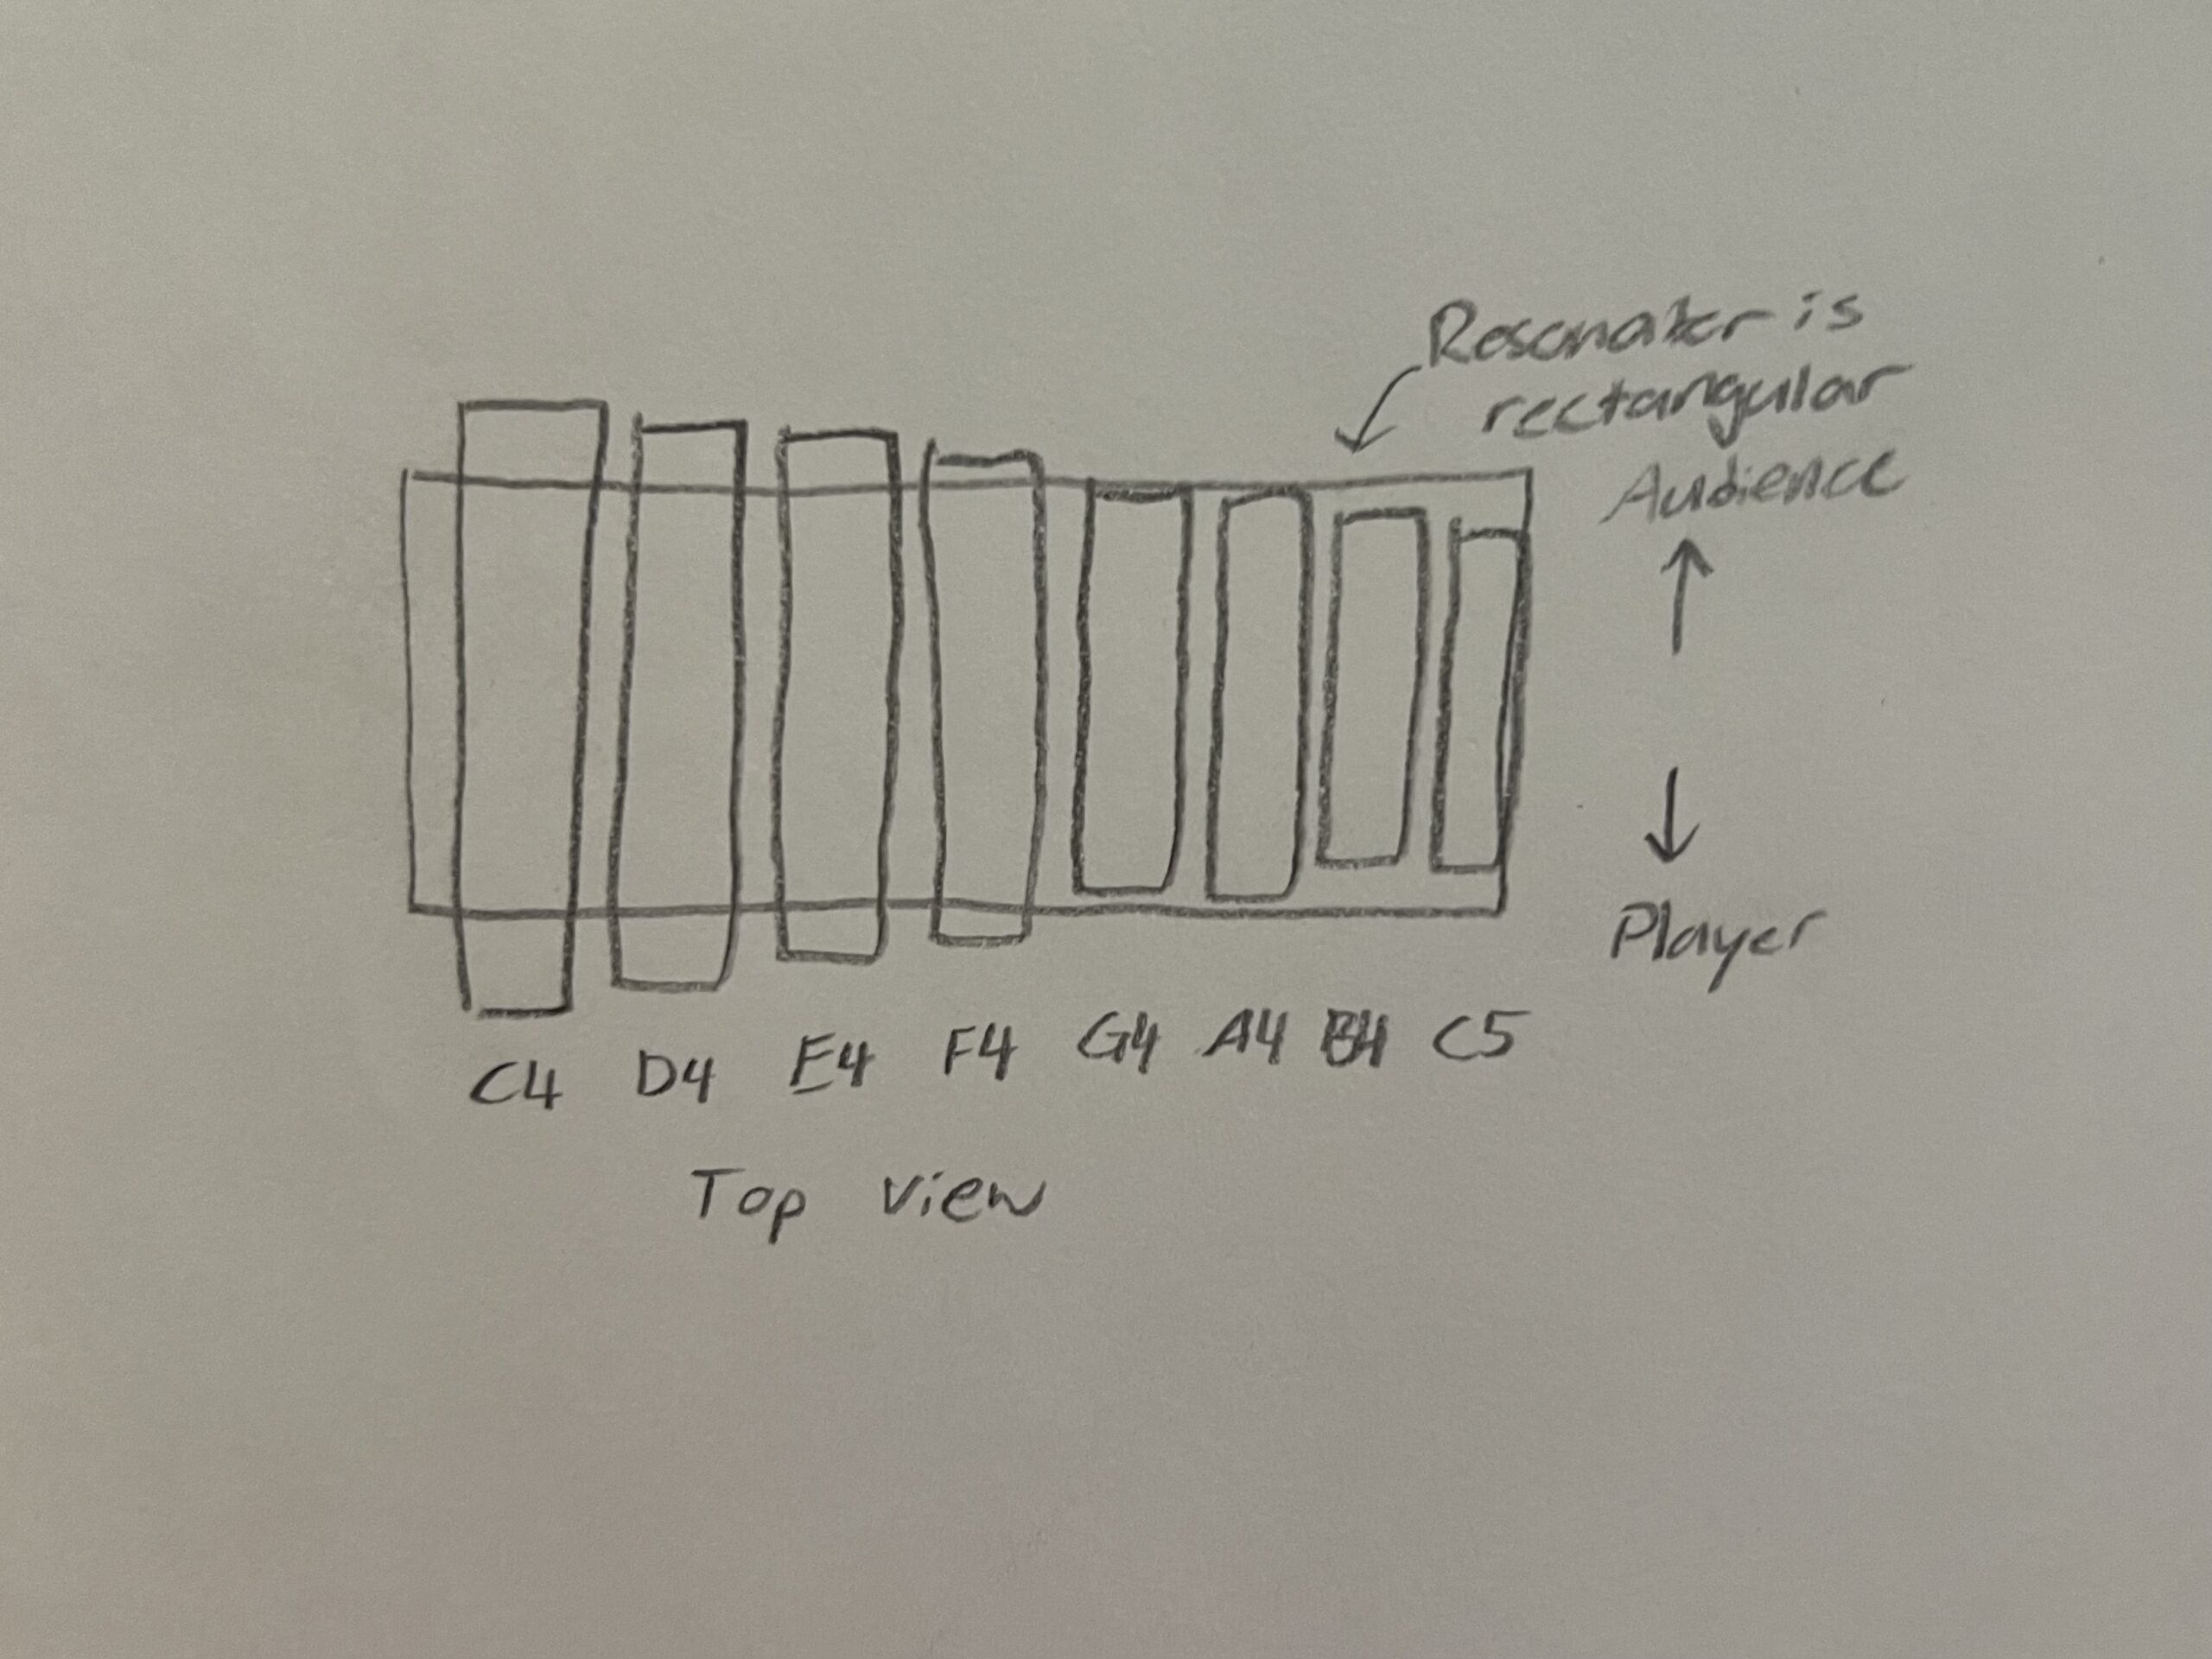 Resonator is
rectangular
Audience
Player
C4 D4 E4 F4 G4 A4 B4 C5
Top View